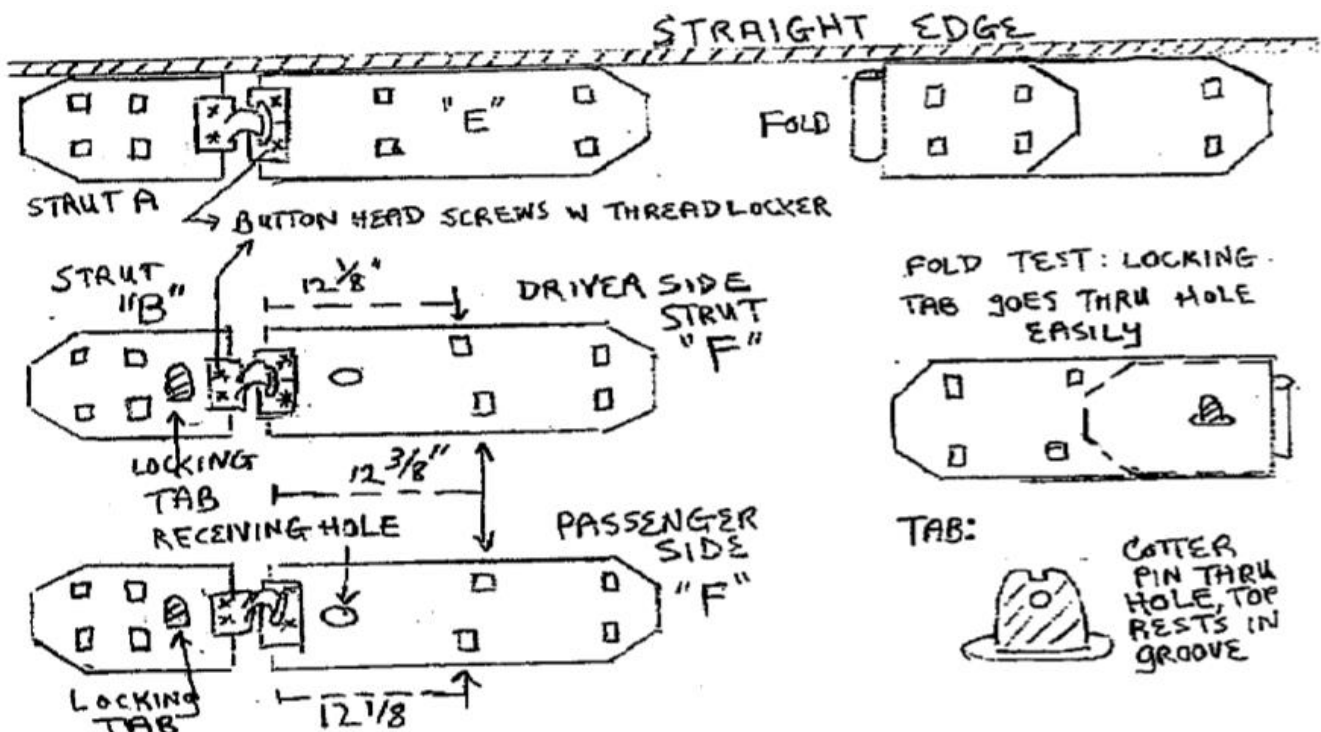 STRAIGHT EDGE
"E"
FOLD
STRUT A
BUTTON HEAD SCREWS W THREADLOCKER
STRUT
"B"
12 1/8"
DRIVER SIDE
STRUT
"F"
FOLD TEST: LOCKING
TAB GOES THRU HOLE
EASILY
LOCKING
TAB
12 3/8"
RECEIVING HOLE
PASSENGER
SIDE
"F"
TAB:
COTTER
PIN THRU
HOLE, TOP
RESTS IN
GROOVE
LOCKING
TAB
12 1/8